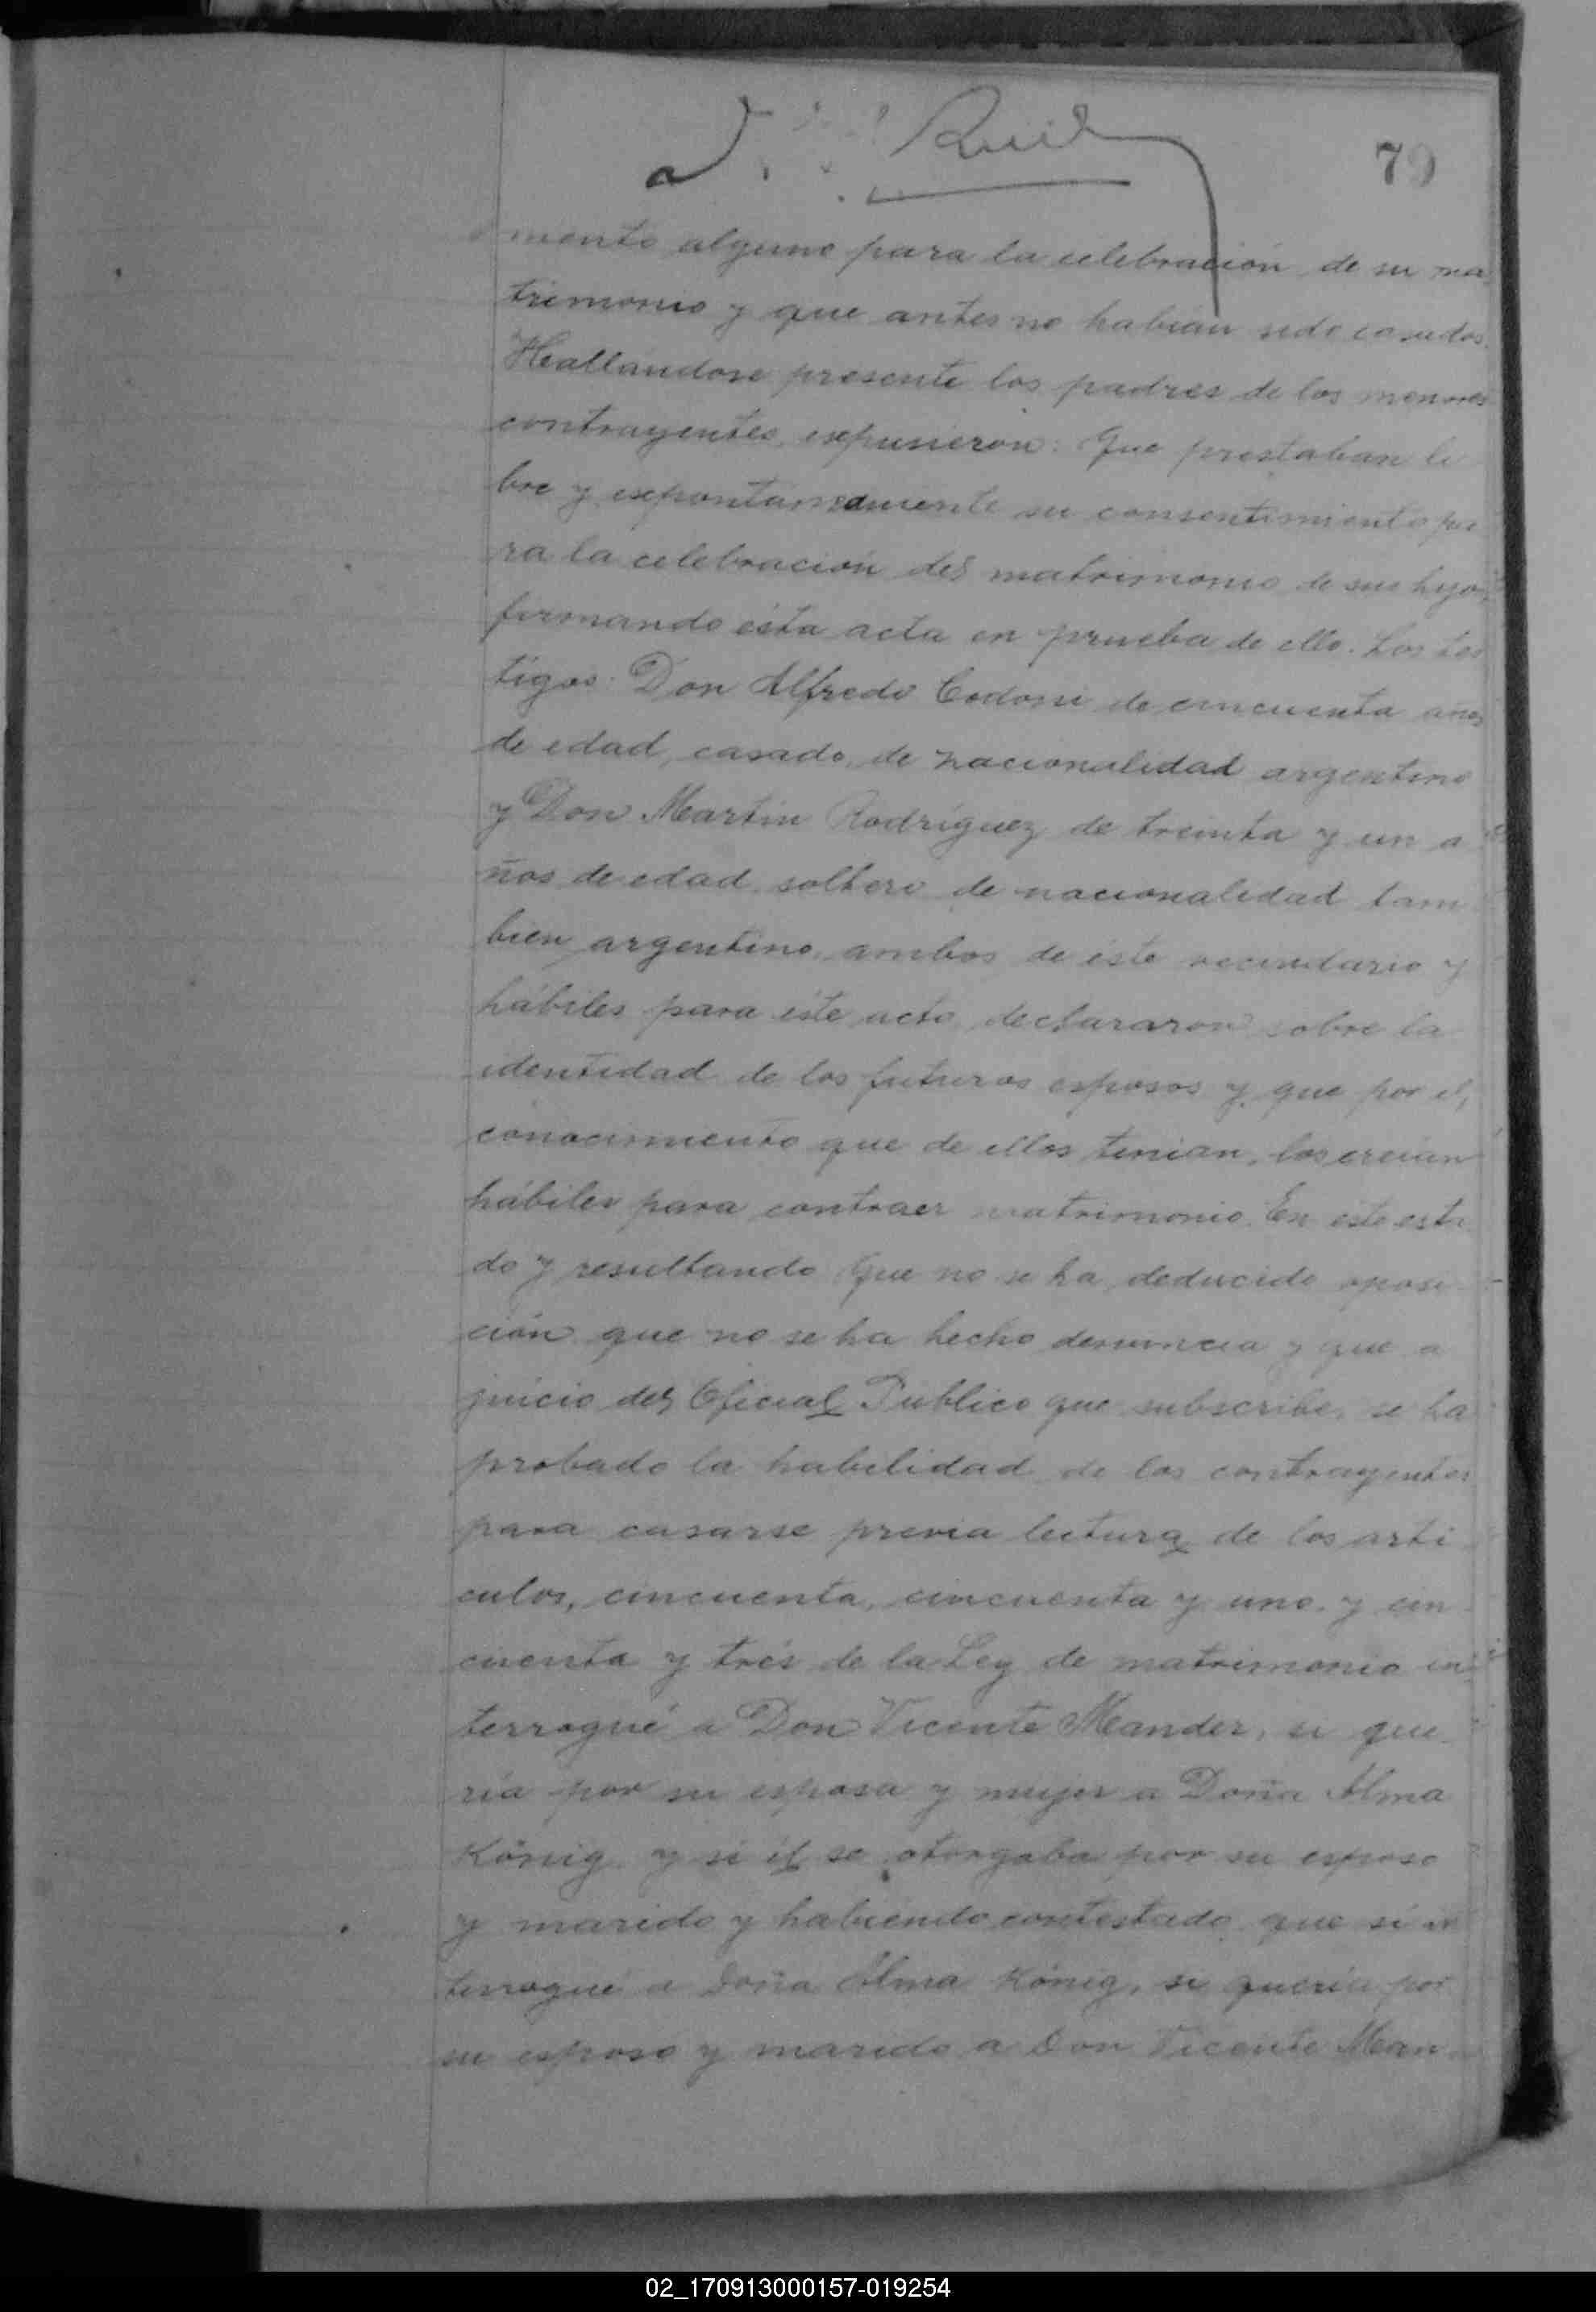 79
mento alguno para la celebración de su ma
trimonio y que antes no habian sido casados.
Hallandose presente los padres de los menores
contrayentes, expusieron: Que prestaban li
bre y expontaneamente su consentimiento pa
ra la celebración del matrimonio de sus hijos,
firmando ésta acta en prueba de ello. Los tes
tigos: Don Alfredo Codoni de cincuenta años
de edad, casado, de nacionalidad argentino
y Don Martin Rodríguez de treinta y un a
ños de edad, soltero de nacionalidad tam
bien argentino, ambos de éste vecindario y
hábiles para éste acto, declararon sobre la
identidad de los futuros esposos y que por el
conocimiento que de ellos tenian, los creian
hábiles para contraer matrimonio. En este esta
do y resultando Que no se ha deducido oposi
ción que no se ha hecho denuncia y que a
juicio del Oficial Publico que subscribe, se ha
probado la habilidad de los contrayentes
para casarse previa lectura de los arti
culos, cincuenta, cincuenta y uno y cin
cuenta y trés de la Ley de matrimonio in
terrogué a Don Vicente Meander, si que
ria por su esposa y mujer a Doña Alma
König y si él se otorgaba por su esposo
y marido y habiendo contestado que sí in
terrogué a Doña Alma König, si queria por
su esposo y marido a Don Vicente Mean
02_170913000157-019254